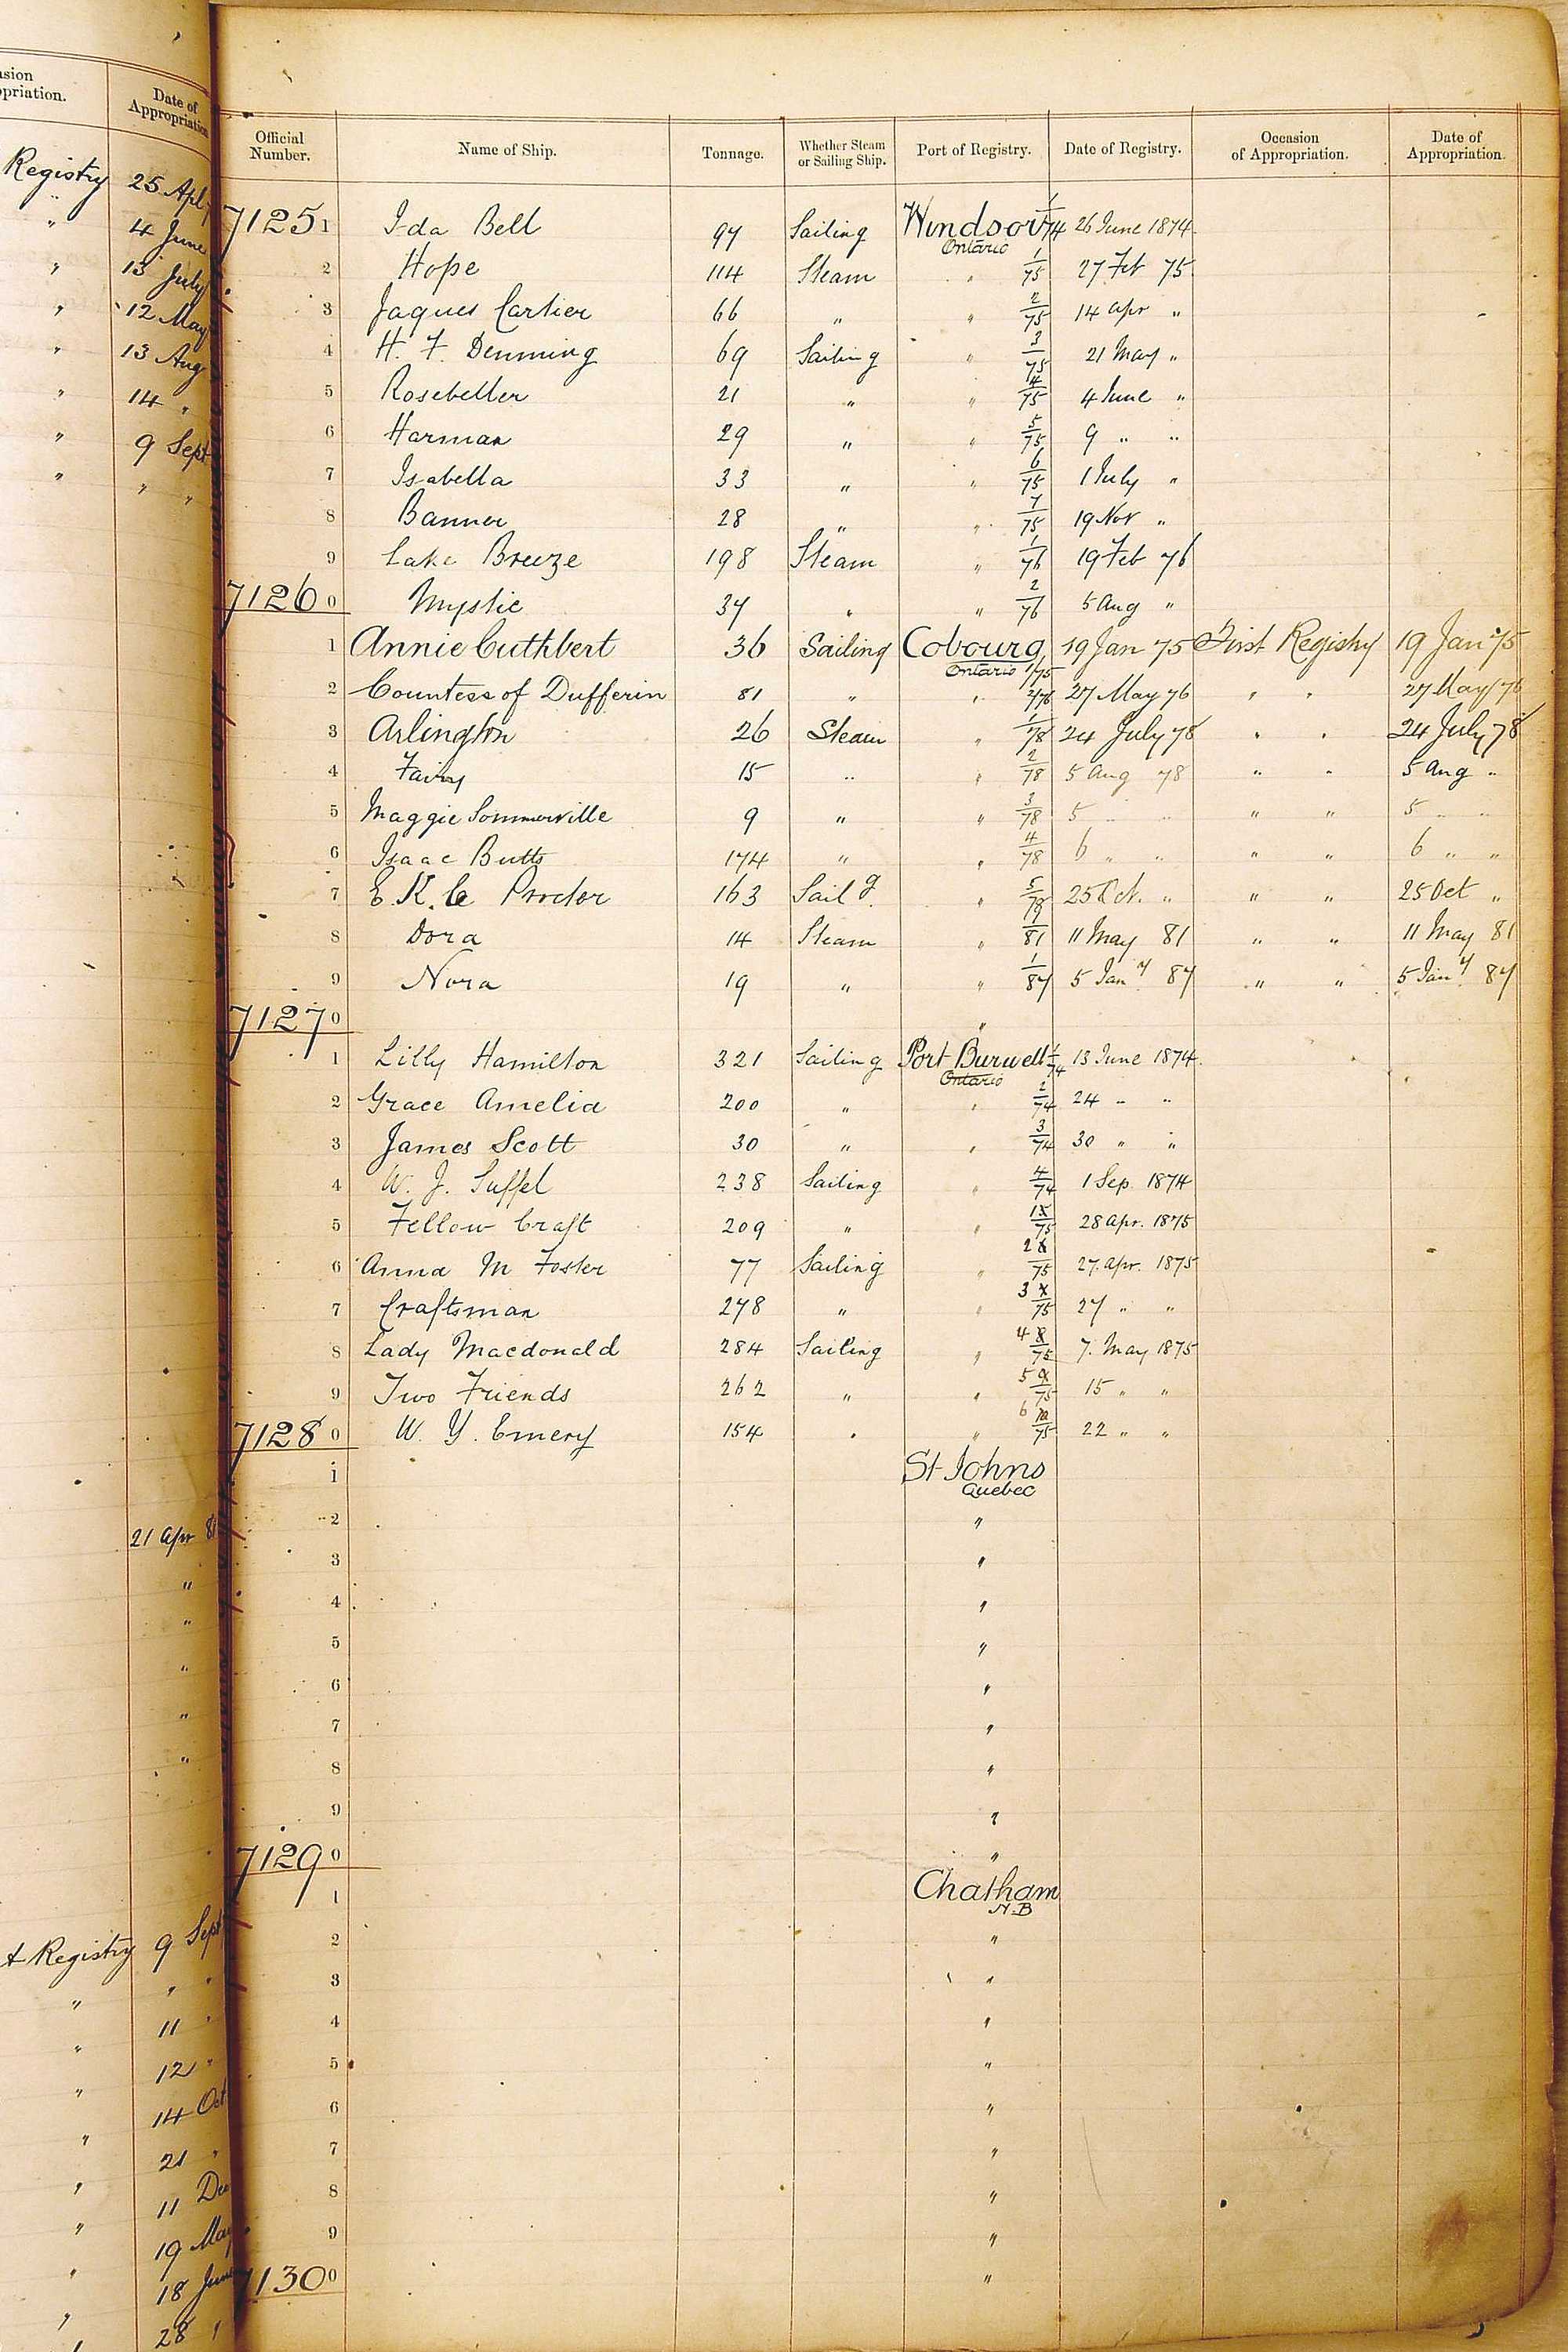 Registry 25 Apl
" 4 June
" 13 July
" 12 May
" 13 Aug
" 14 "
" 9 Sept
" " "
21 Apr 8
"
"
"
"
"
t Registry 9 Sept
" " "
" 11 "
" 12 "
" 14 Oct
" 21 "
" 11 De
" 19 May
" 18 June
" 28 "
Official Number. Name of Ship. Tonnage. Whether Steam or Sailing Ship. Port of Registry. Date of Registry. Occasion of Appropriation. Date of Appropriation.
7125 1 Ida Bell 97 Sailing Windsor 1/74 26 June 1874
Ontario
2 Hope 114 Steam " 1/75 27 Feb 75
3 Jaques Cartier 66 " " 2/75 14 Apr "
4 H. F. Denming 69 Sailing " 3/75 21 May "
5 Rosebeller 21 " " 4/75 4 June "
6 Harman 29 " " 5/75 9 " "
7 Isabella 33 " " 6/75 1 July "
8 Banner 28 " " 7/75 19 Nov "
9 Lake Breeze 198 Steam " 1/76 19 Feb 76
7126 0 Mystic 34 " " 2/76 5 Aug "
1 Annie Cuthbert 36 Sailing Cobourg 19 Jan 75 First Registry 19 Jan 75
Ontario 1/75
2 Countess of Dufferin 81 " " 2/76 27 May 76 " " 27 May 76
3 Arlington 26 Steam " 1/78 24 July 78 " " 24 July 78
4 Fairy 15 " " 2/78 5 Aug 78 " " 5 Aug "
5 Maggie Sommerville 9 " " 3/78 5 " " " " 5 " "
6 Isaac Butts 174 " " 4/78 6 " " " " 6 " "
7 E. K. C Proctor 163 Sailg " 5/78 25 Oct. " " " 25 Oct "
8 Dora 14 Steam " 1/81 11 May 81 " " 11 May 81
9 Nora 19 " " 1/87 5 Jany 87 " " 5 Jany 87
7127 0 "
1 Lilly Hamilton 321 Sailing Port Burwell 1/74 13 June 1874
Ontario
2 Grace Amelia 200 " " 2/74 24 " "
3 James Scott 30 " " 3/74 30 " "
4 W. J. Suffel 238 Sailing " 4/74 1 Sep. 1874
5 Fellow Craft 209 " " 1/75 28 Apr. 1875
6 Anna M Foster 77 Sailing " 2/75 27 Apr. 1875
7 Craftsman 278 " " 3/75 27 " "
8 Lady Macdonald 284 Sailing " 4/75 7. May 1875
9 Two Friends 262 " " 5/75 15 " "
7128 0 W. Y. Emery 154 " " 6/75 22 " "
1 St Johns
Quebec
2 "
3 "
4 "
5 "
6 "
7 "
8 "
9 "
7129 0 "
1 Chatham
N.B
2 "
3 "
4 "
5 "
6 "
7 "
8 "
9 "
7130 0 "